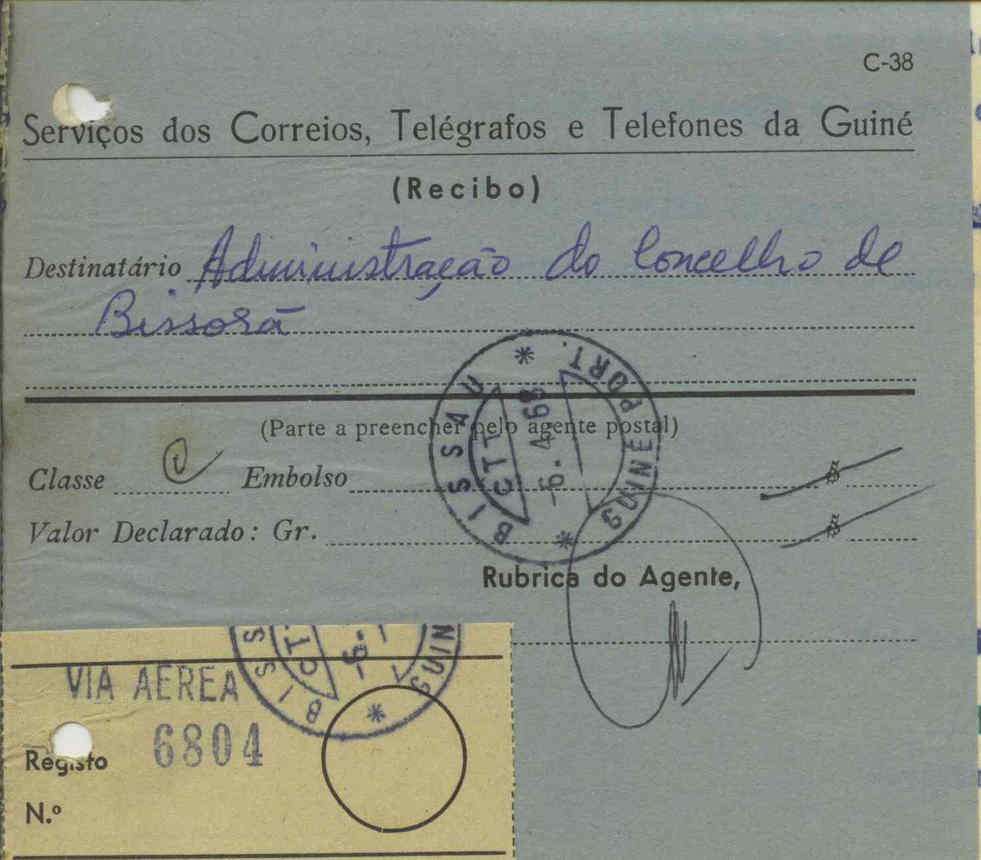 C-38
Serviços dos Correios, Telégrafos e Telefones da Guiné
(Recibo)
Destinatário Administração do Concelho de
Bissorã
(Parte a preencher pelo agente postal)
Classe Embolso $
Valor Declarado: Gr. $
BISSAU
CTT
-6. 4.68
GUINÉ PORT.
Rubrica do Agente,
BISS
CT
-6.
GUIN
VIA AEREA
Registo 6804
N.º